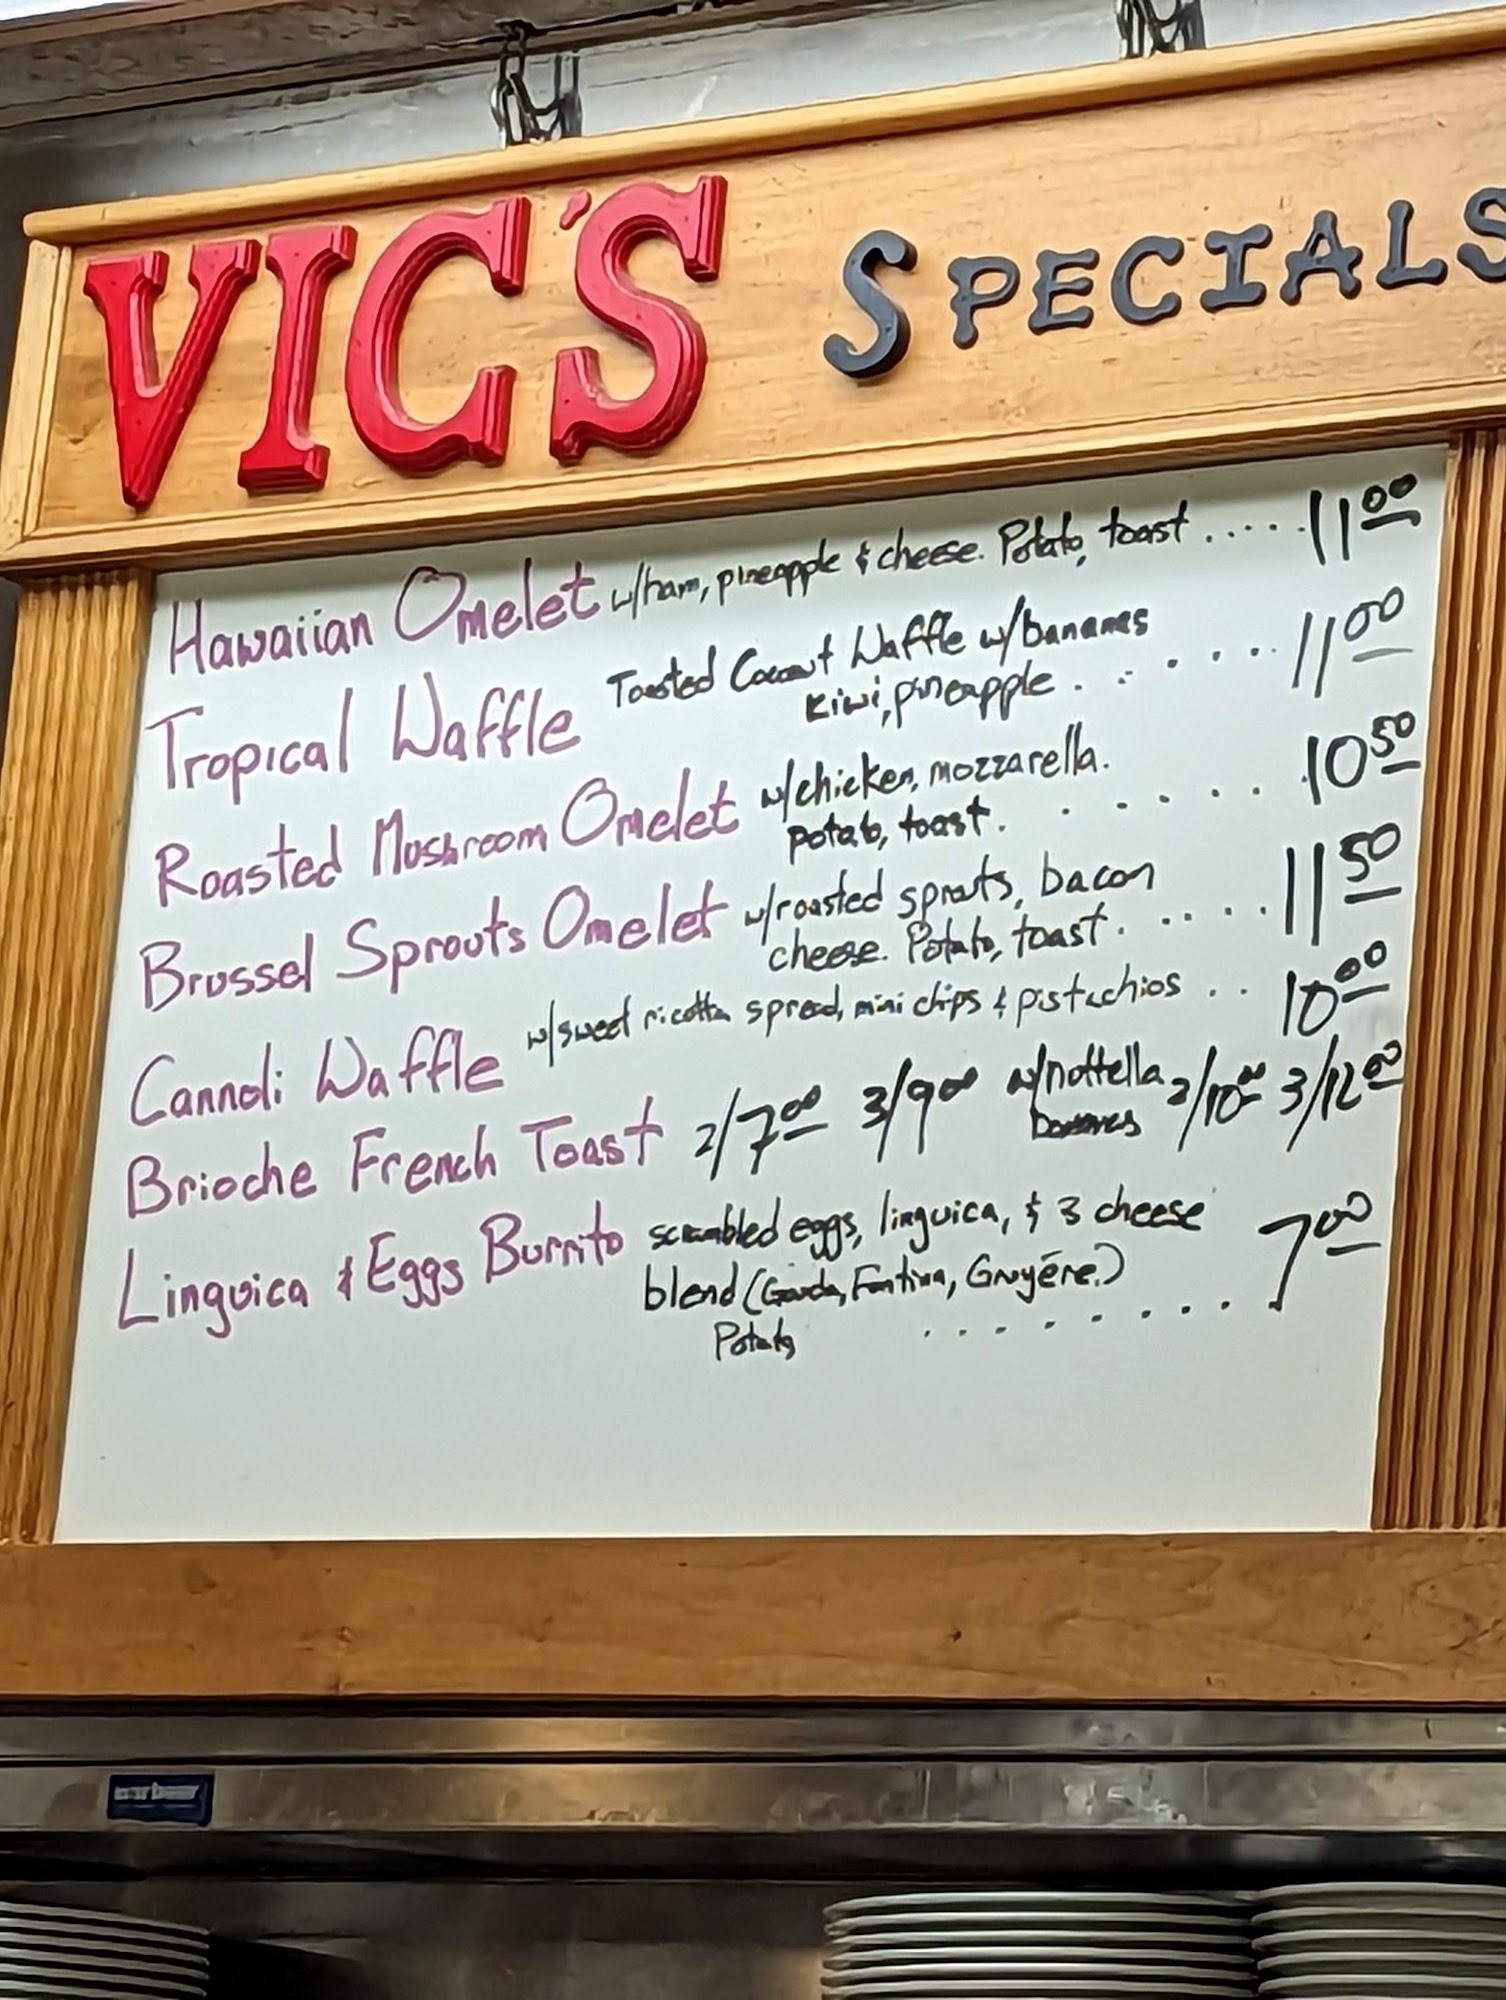 VIC'S SPECIALS
Hawaiian Omelet w/ham, pineapple & cheese. Potato, toast ..... 11.00
Tropical Waffle Toasted Coconut Waffle w/bananas
kiwi, pineapple ...... 11.00
Roasted Mushroom Omelet w/chicken, mozzarella.
potato, toast. ..... 10.50
Brussel Sprouts Omelet w/roasted sprouts, bacon
cheese. Potato, toast ..... 11.50
Cannoli Waffle w/sweet ricotta spread, mini chips & pistachios .. 10.00
Brioche French Toast 2/7.00 3/9.00 w/nuttella 2/10.00 3/12.00
bananas
Linguica & Eggs Burrito scrambled eggs, linguica, & 3 cheese
blend (Gouda, Fontina, Gruyēre.) 7.00
Potato ........